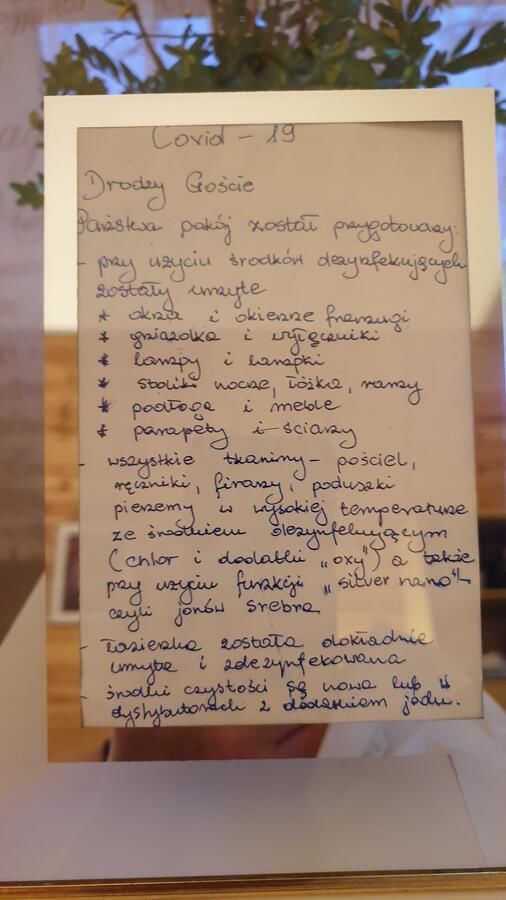 Covid - 19
Drodzy Goście
Państwa pokój został przygotowany:
- przy użyciu środków dezynfekujących
zostały umyte
* okna i okienne framugi
* gniazdka i wyłączniki
* lampy i lampki
* stoliki nocne, łóżka, ramy
* podłoga i meble
* parapety i ściany
- wszystkie tkaniny - pościel,
ręczniki, firany, poduszki
pierzemy w wysokiej temperaturze
ze środkiem dezynfekującym
(chlor i dodatki "oxy") a także
przy użyciu funkcji "silver nano"
czyli jonów srebra
- łazienka została dokładnie
umyta i zdezynfekowana
- środki czystości są nowe lub w
dystrybutorach z dodaniem jodu.